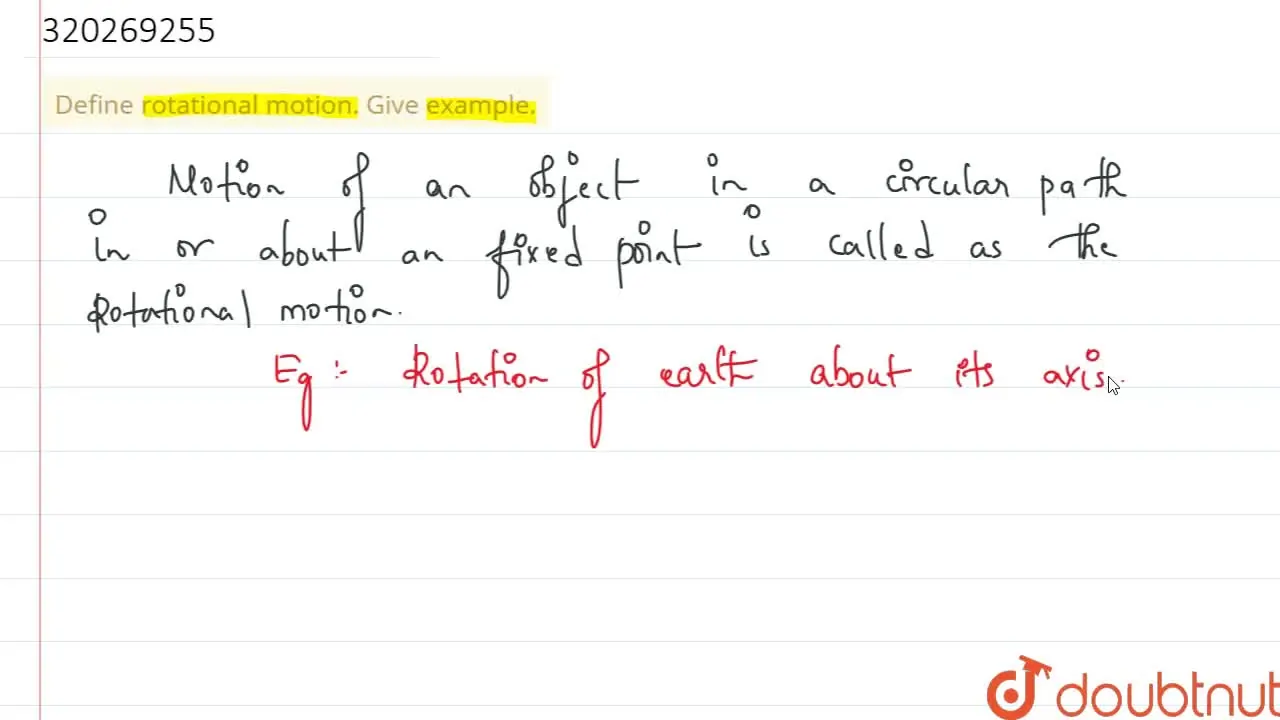 320269255
Define rotational motion. Give example.
Motion of an object in a circular path
in or about an fixed point is called as the
Rotational motion.
Eg :- Rotation of earth about its axis.
doubtnut